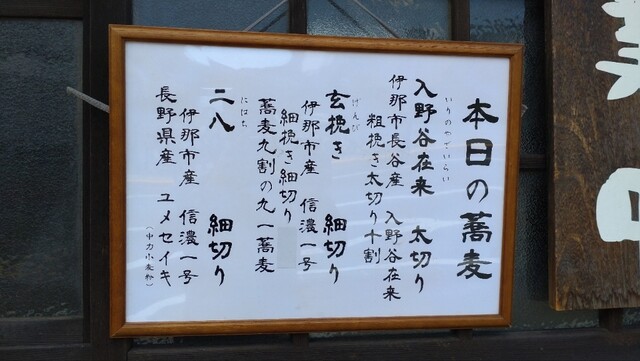 本日の蕎麦
いりのやざいらい
入野谷在来 太切り
伊那市長谷産 入野谷在来
粗挽き太切り十割
げんびき
玄挽き 細切り
伊那市産 信濃一号
細挽き細切り
蕎麦九割の九一蕎麦
にはち
二八 細切り
伊那市産 信濃一号
長野県産 ユメセイキ
(中力小麦粉)